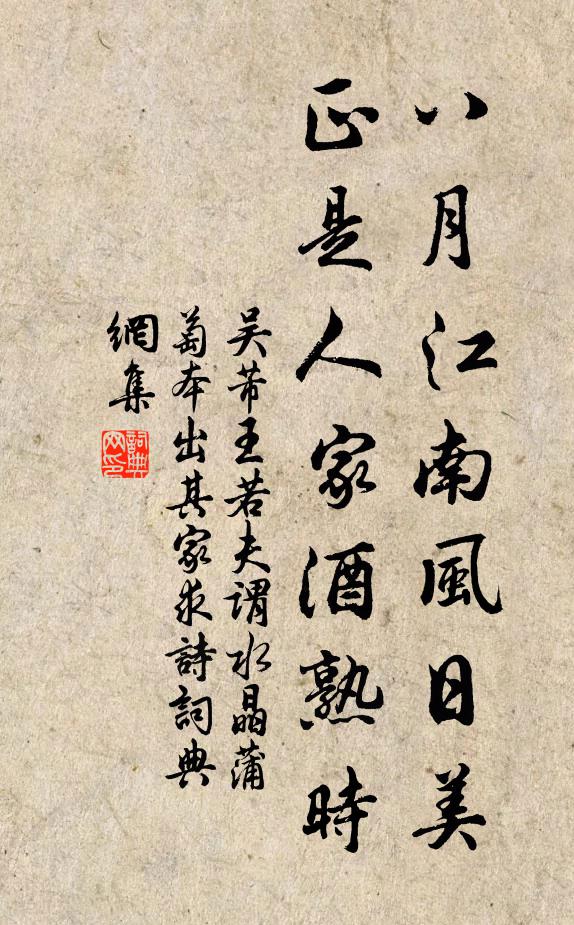 八月江南風日美
正是人家酒熟時
吳芾王若夫謂水晶蒲
萄本出其家求詩詞典
網集
詞典網印